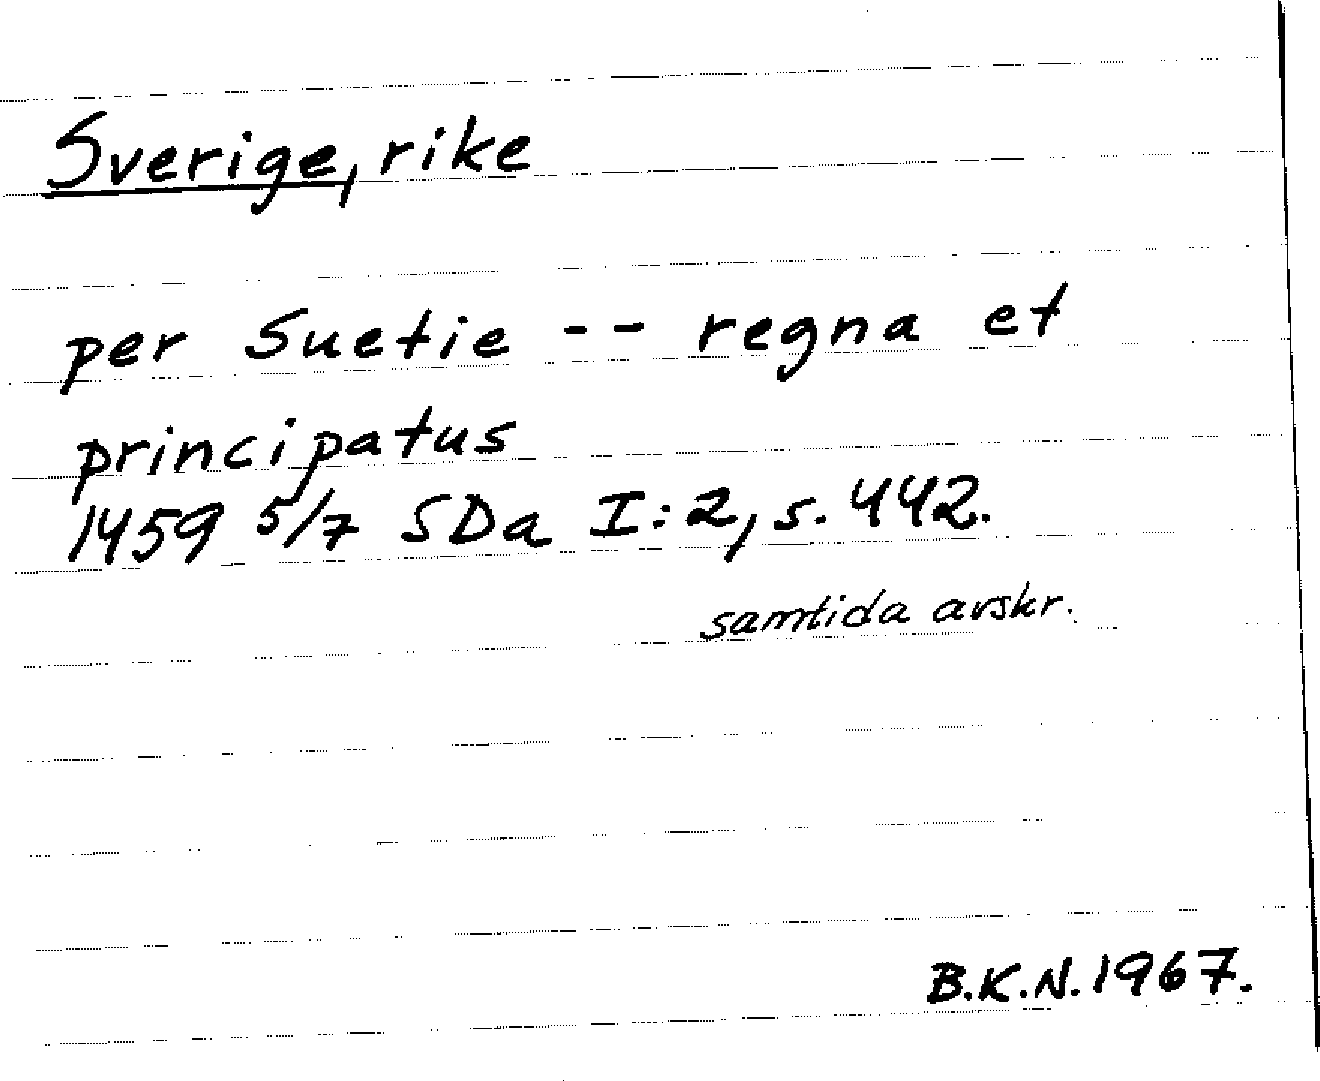 Sverige, rike
per Suetie -- regna et
principatus
1459 5/7 SDa I:2, s. 442.
samtida avskr.
B.K.N. 1967.